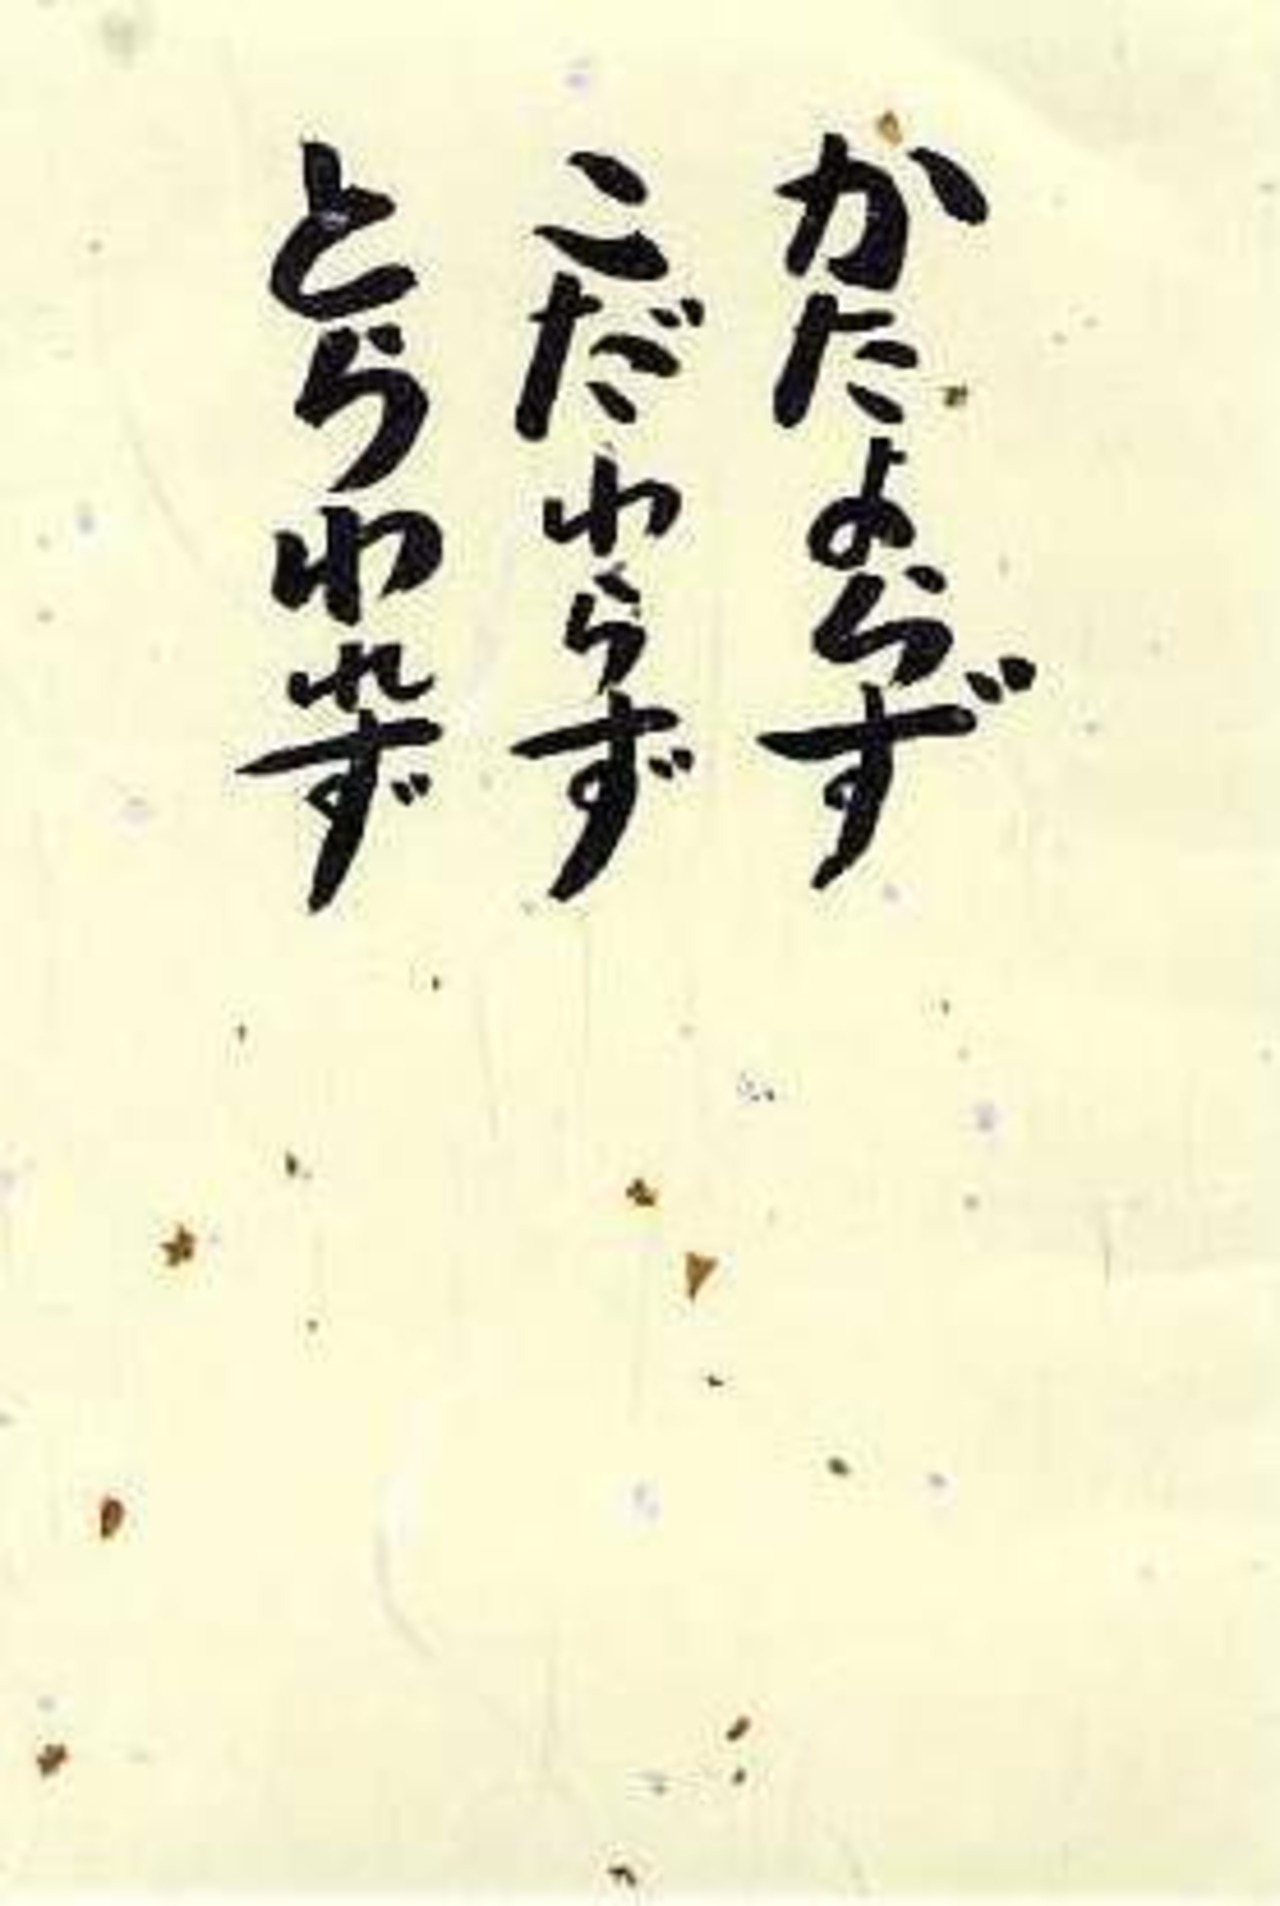 かたよらず
こだわらず
とらわれず